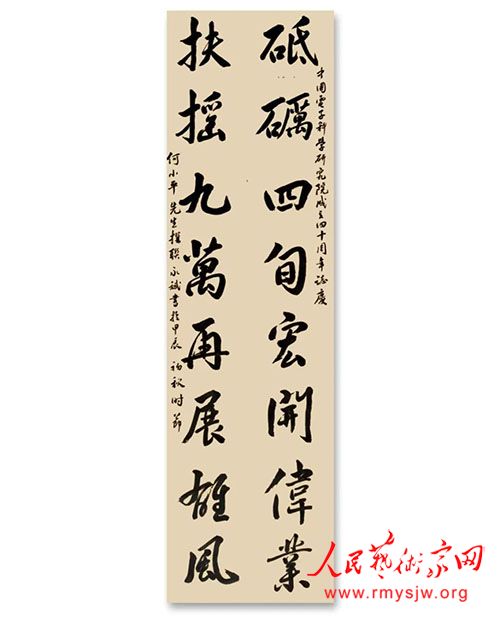 砥礪四旬宏開偉業
中国電子科學研究院成立四十周年誌慶
扶搖九萬再展雄風
何小平先生撰聯 永書於甲辰初秋时節
人民藝術家网
www.rmysjw.org